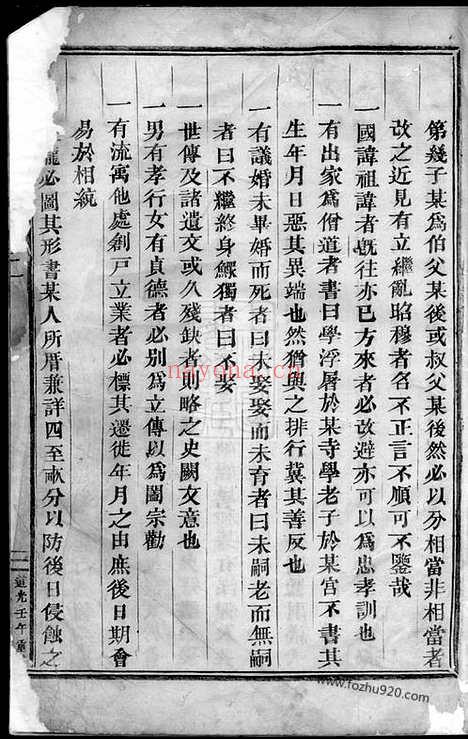 第幾子某爲伯父某後或叔父某後然必以分相當非相當者
改之近見有立繼亂昭穆者名不正言不順可不鑒哉
一國諱祖諱者旣往亦已方來者必改避亦可以爲忠孝訓也
一有出家爲僧道者書曰學浮屠於某寺學老子於某宮不書其
生年月日惡其異端也然猶與之排行冀其善反也
一有議婚未畢婚而死者曰未娶娶而未育者曰未嗣老而無嗣
者曰不繼終身鰥獨者曰不娶
一世傳及諸遺文或久殘缺者則略之史闕文意也
一男有孝行女有貞德者必別爲立傳以爲闔宗勸
一有流寓他處創戸立業者必標其遷徙年月之由庶後日期會
易於相統
壠必圖其形書某人所厝兼詳四至畝分以防後日侵蝕之
道光壬午重
nayona.cn
www.fozhu920.com